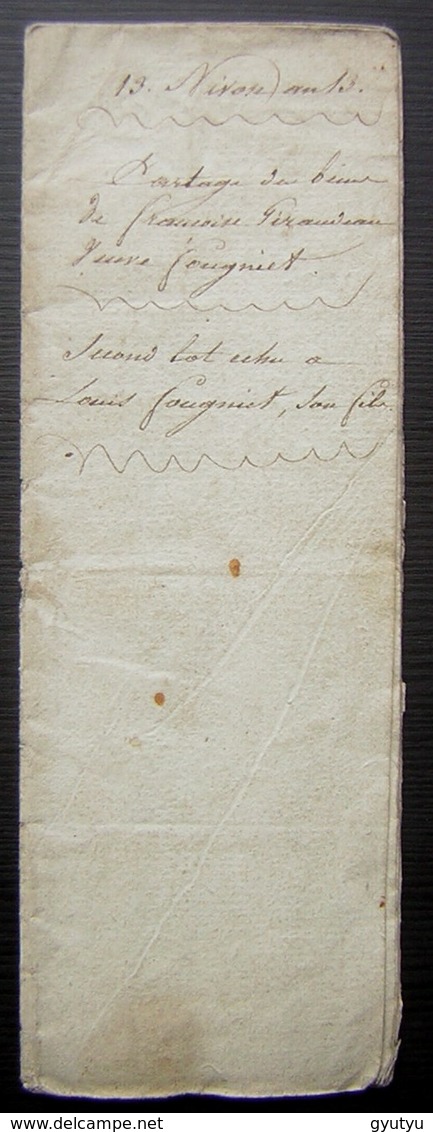 13. Nivose an 13.
Partage des biens
de francoise Giraudeau
Veuve Cougniet.
Second lot echu a
Louis Cougniet, son fils.
www.delcampe.net
gyutyu